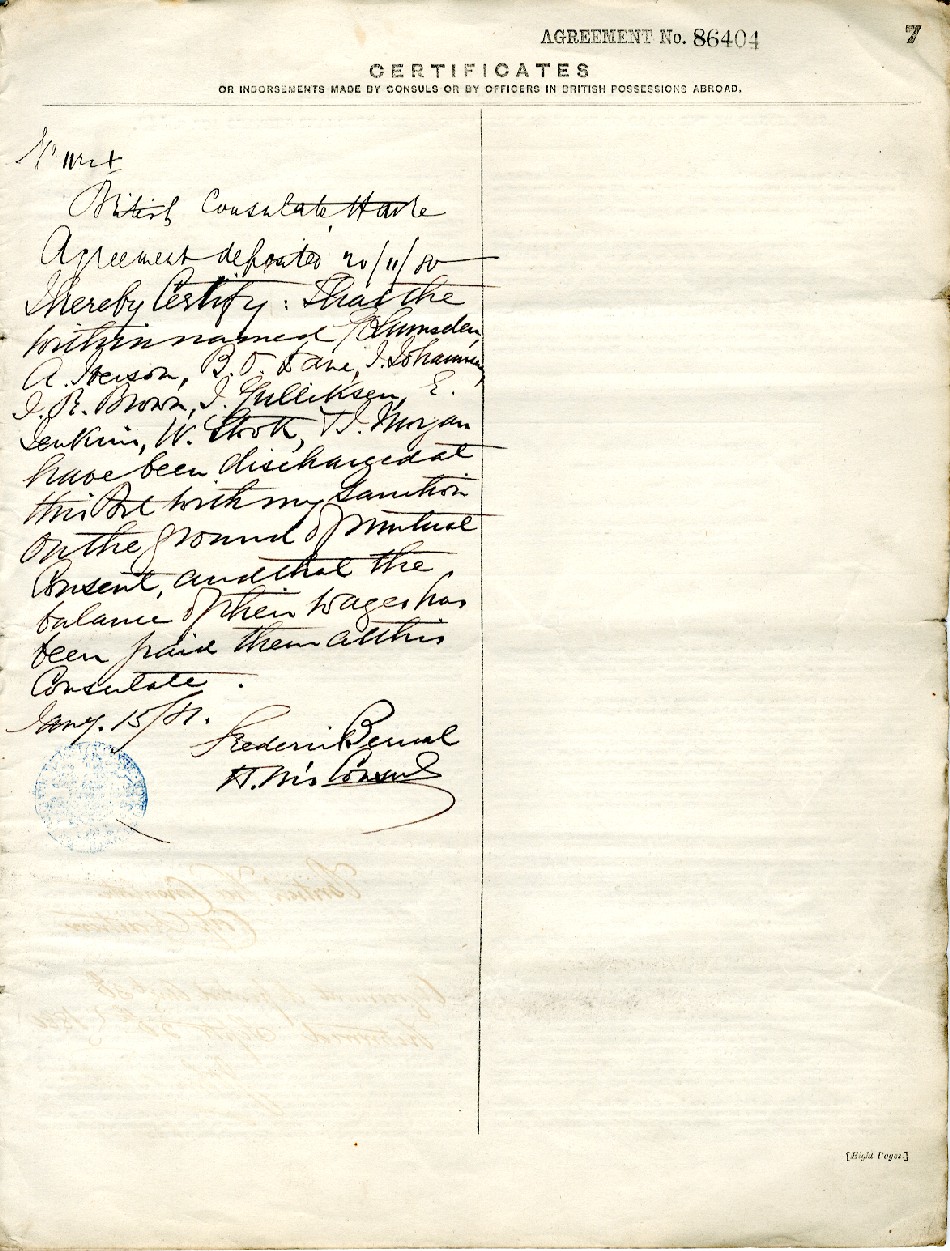 AGREEMENT No. 86404
7
CERTIFICATES
OR INDORSEMENTS MADE BY CONSULS OR BY OFFICERS IN BRITISH POSSESSIONS ABROAD.
British Consulate, Havre
Agreement deposited 20/11/80
I hereby Certify: That the
within named Lumsden,
A. Iverson, B. O. Dane, J. Johannsen,
J. R. Brown, J. Gulliksen, E.
Jenkins, W. Strok, T. J. Morgan
have been discharged at
this Port with my Sanction
on the ground of mutual
Consent, and that the
balance of their wages has
been paid them at this
Consulate.
Jany. 15/81.
Frederic Bernal
H.M's Consul
[Eight Pages.]